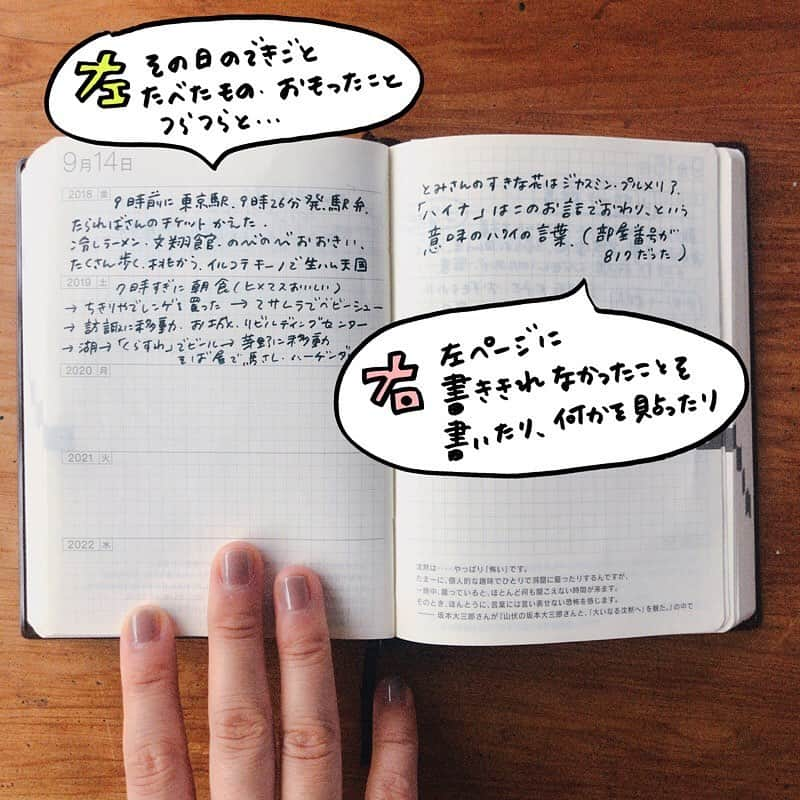 左 その日のできごと
たべたもの・おもったこと
つらつらと…
9月14日
2018 金
9時前に東京駅、9時26分発、駅弁、
たらればさんのチケットかえた、
冷しラーメン・文翔館・のべのべおおきい、
たくさん歩く、桃かう、イルコテキーノで生ハム天国
2019 土
7時すぎに朝食（ヒメマスおいしい）
→ ちきりやでレンゲを買った → てサムラでベビーシュー
→ 諏訪に移動・お城・リビルディングセンター
→ 湖→「くらすわ」でビール→ 茅野に移動
そば屋で馬さし・ハーゲンダ
2020 月
2021 火
2022 水
とみさんのすきな花はジャスミン・プルメリア、
「ハイナ」はこのお話でおわり、という
意味のハワイの言葉、（部屋番号が
817だった）
右 左ページに
書ききれなかったことを
書いたり、何かを貼ったり
沈黙は……やっぱり「怖い」です。
たまーに、個人的な趣味でひとりで洞窟に籠ったりするんですが、
一晩中、籠っていると、ほとんど何も聞こえない時間が来ます。
そのとき、ほんとうに、言葉には言い表せない恐怖を感じます。
——坂本大三郎さんが『山伏の坂本大三郎さんと、「大いなる沈黙へ」を観た。』の中で